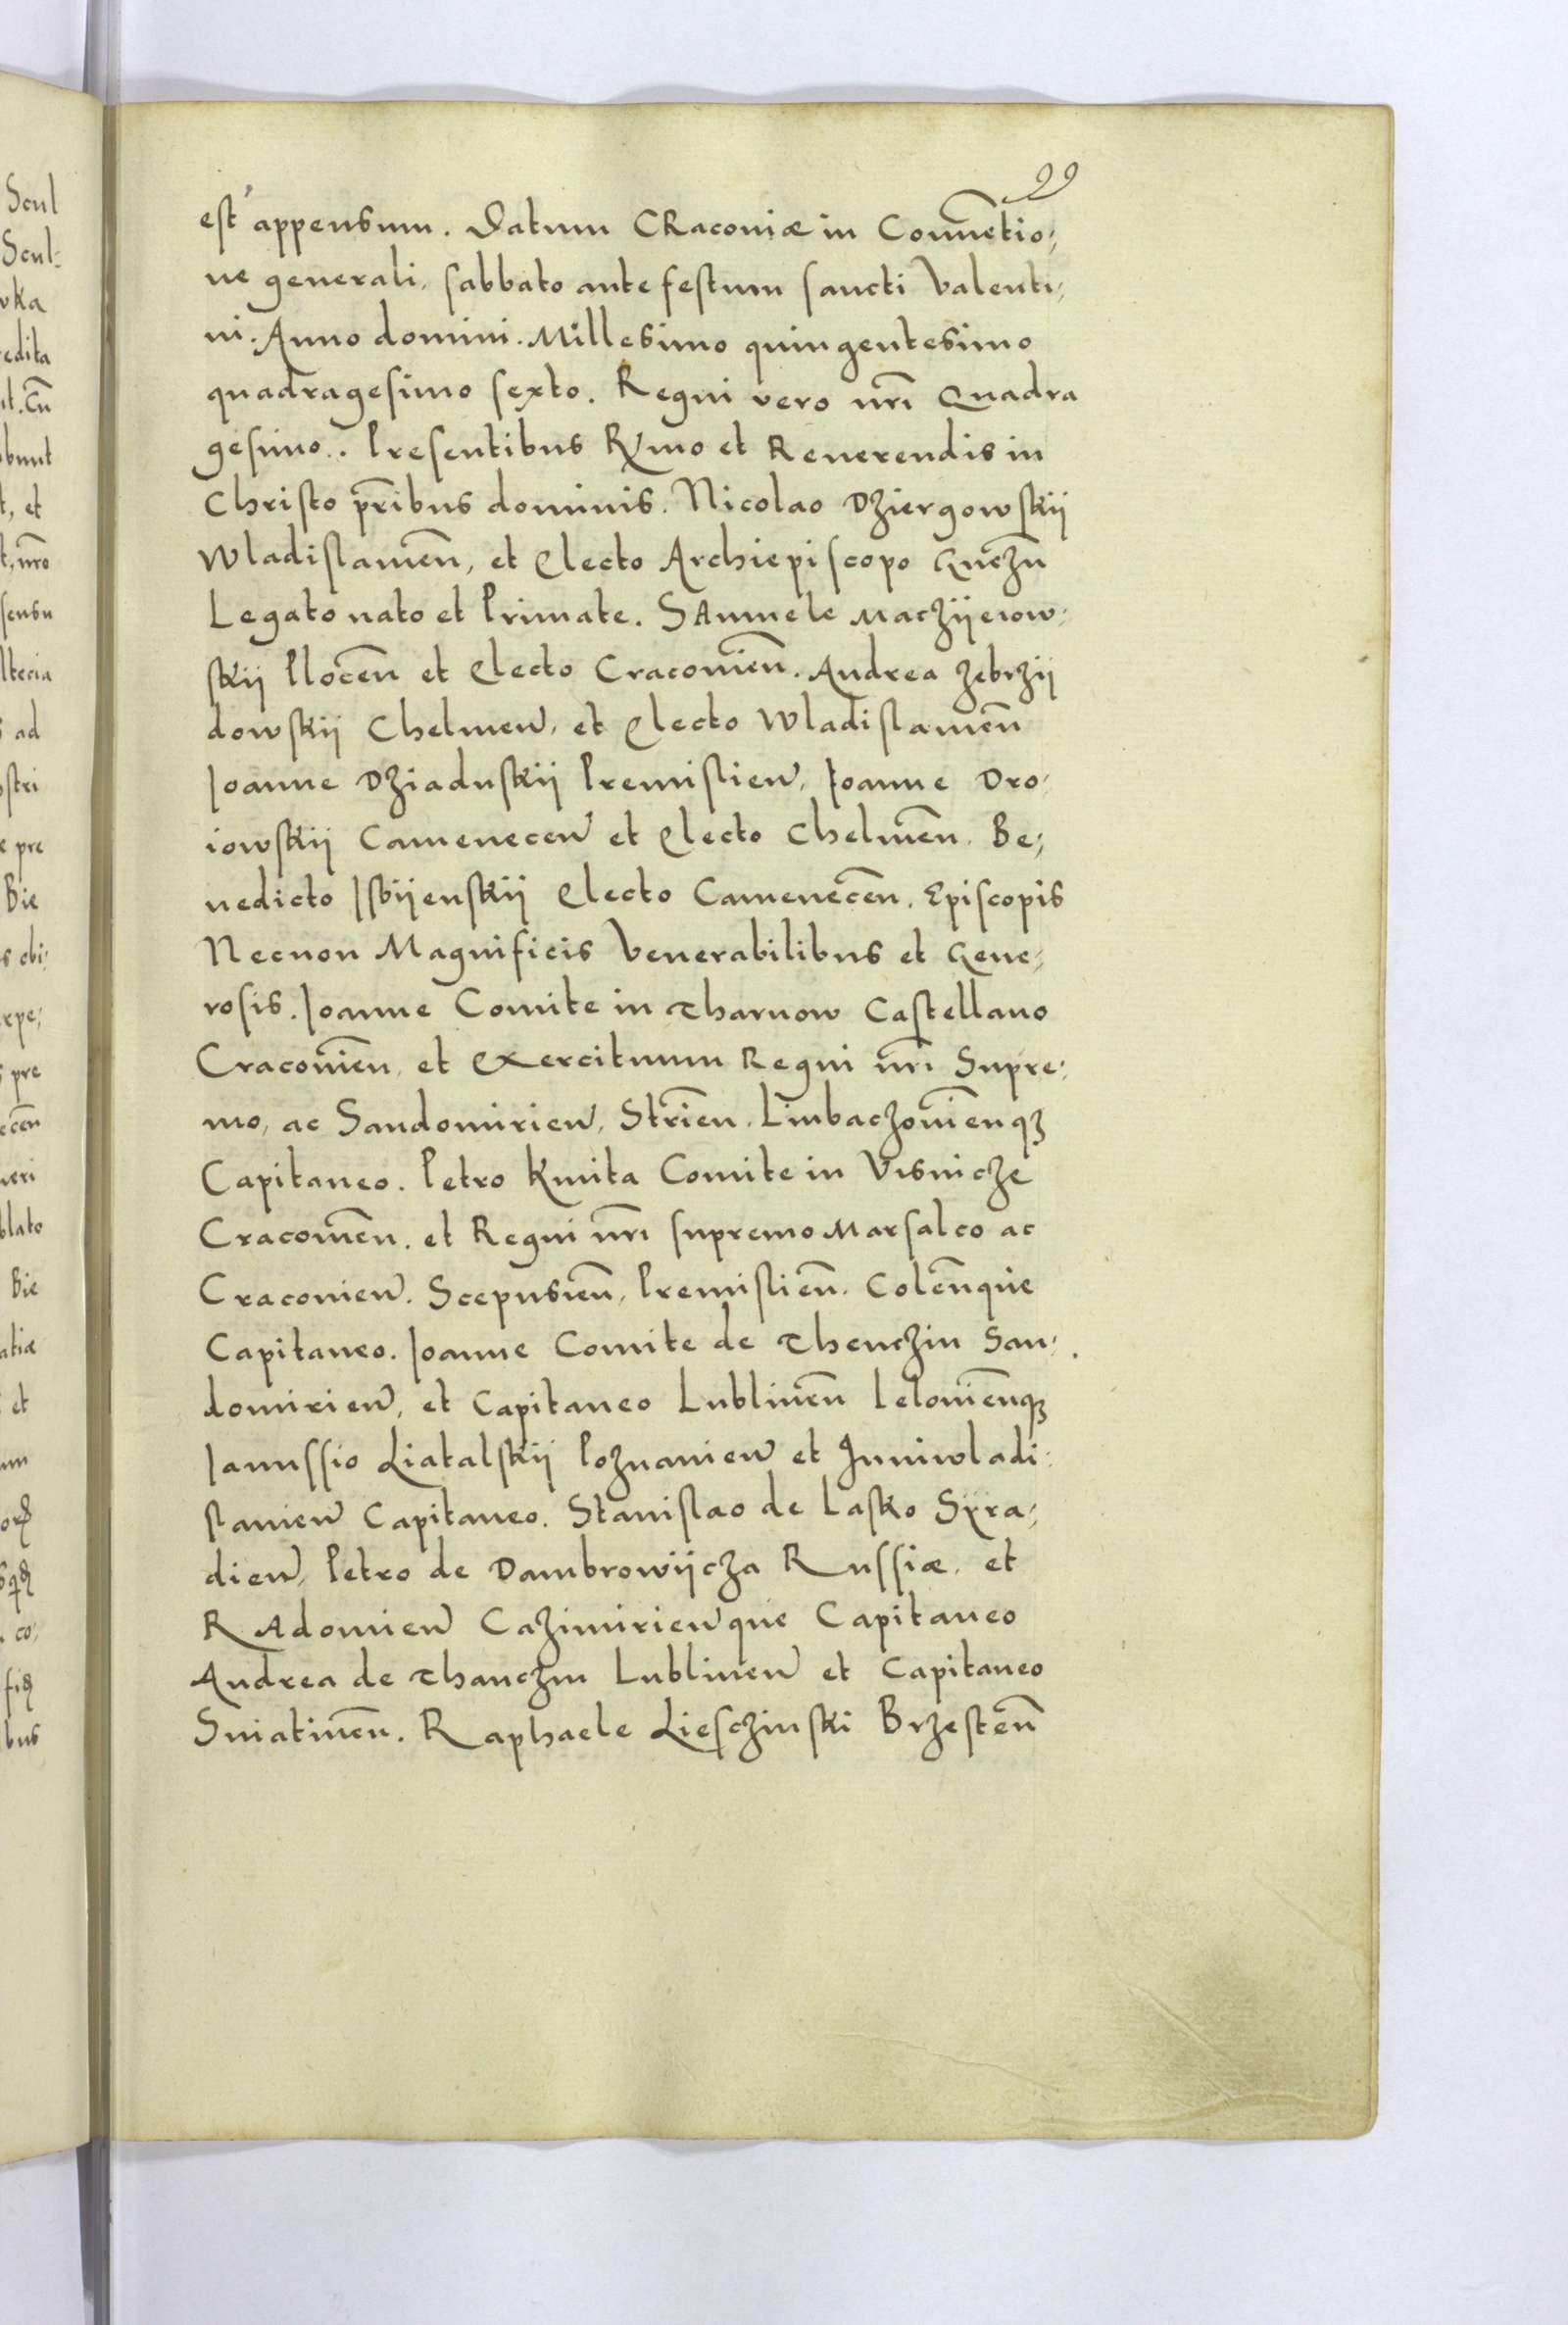 29
est appensum. Datum CRaconiæ in Conue͂tio,
ne generali, sabbato ante festum sancti Valenti,
ni. Anno domini. Millesimo quingentesimo
quadragesimo sexto. Regni vero nr͂i Quadra
gesimo.. Presentibus R͂mo et Reuerendis in
Christo pr͂ibus dominis. Nicolao Dziergowskij
Wladislauien͂, et Electo Archiepiscopo Gnezn͂
Legato nato et Primate. SAmuele Maczijeiow,
skij Plocen͂ et Electo Cracouien͂. Andrea Zebrzij
dowskij Chelmen͂, et Electo Wladislauien͂
Joanne Dziaduskij Premislien͂, Joanne Dro,
iowskij Camenecen͂ et Electo Chelmen͂. Be,
nedicto Jsbijenskij Electo Camenecen͂. Episcopis
Necnon Magnificis Venerabilibus et Gene,
rosis. Joanne Comite in Tharnow Castellano
Cracouien͂, et Exercituum Regni nr͂i Supre,
mo, ac Sandomirien͂, Strien͂. Liubaczouien͂qꝫ
Capitaneo. Petro Kmita Comite in Visnicze
Cracouien͂. et Regni nr͂i supremo Marsalco ac
Cracouien͂. Scepusien͂, Premislien͂. Colen͂que
Capitaneo. Joanne Comite de Thenczin San,
domirien͂, et Capitaneo Lublinen͂ Lelouien͂qꝫ
Janussio Liatalskij Poznanien͂ et Juniwladi,
slauien͂ Capitaneo. Stanislao de Lasko Syra,
dien͂, Petro de Dambrowijcza Russiæ, et
RAdomien͂ Cazimirien͂que Capitaneo
Andrea de Thanczin Lublinen͂ et Capitaneo
Sniatinen͂. Raphaele Liesczinski Brzesten͂